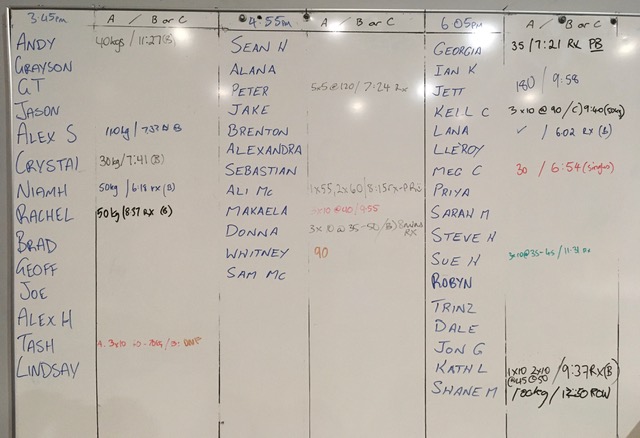 3:45pm A / B or C
ANDY 40kgs / 11:27(B)
GRAYSON
GT
JASON
ALEX S 110kg / 7:33 B
CRYSTAL 30kg/7:41 (B)
NIAMH 50kg / 6:18 rx (B)
RACHEL 50kg/8:57 RX (B)
BRAD
GEOFF
JOE
ALEX H
TASH 3x10
LINDSAY
4:55pm A / B or C
SEAN H
ALANA
PETER 5x5@120 / 7:24 Rx
JAKE
BRENTON
ALEXANDRA
SEBASTIAN
ALI Mc 1x55, 2x60 / 8:15rx
MAKAELA 3x10@40 / 9:55
DONNA 3x10@35-50/(B) RX
WHITNEY 90
SAM Mc
6:05pm A / B or C
GEORGIA 35 / 7:21 Rx PB
IAN K
JETT 180 / 9:58
KELL C 3x10@90 / C) 9:40(50kg)
LANA ✓ / 6:02 Rx (B)
LLEROY
MEG C 30 / 6:54 (singles)
PRIYA
SARAH M
STEVE H
SUE H 3x10@35-45 / 11:31
ROBYN
TRINZ
DALE
JON G
KATH L 1x10 2x10 / 9:37 RX(B)
@45 @50
SHANE M 100kg / 12:50 ROW